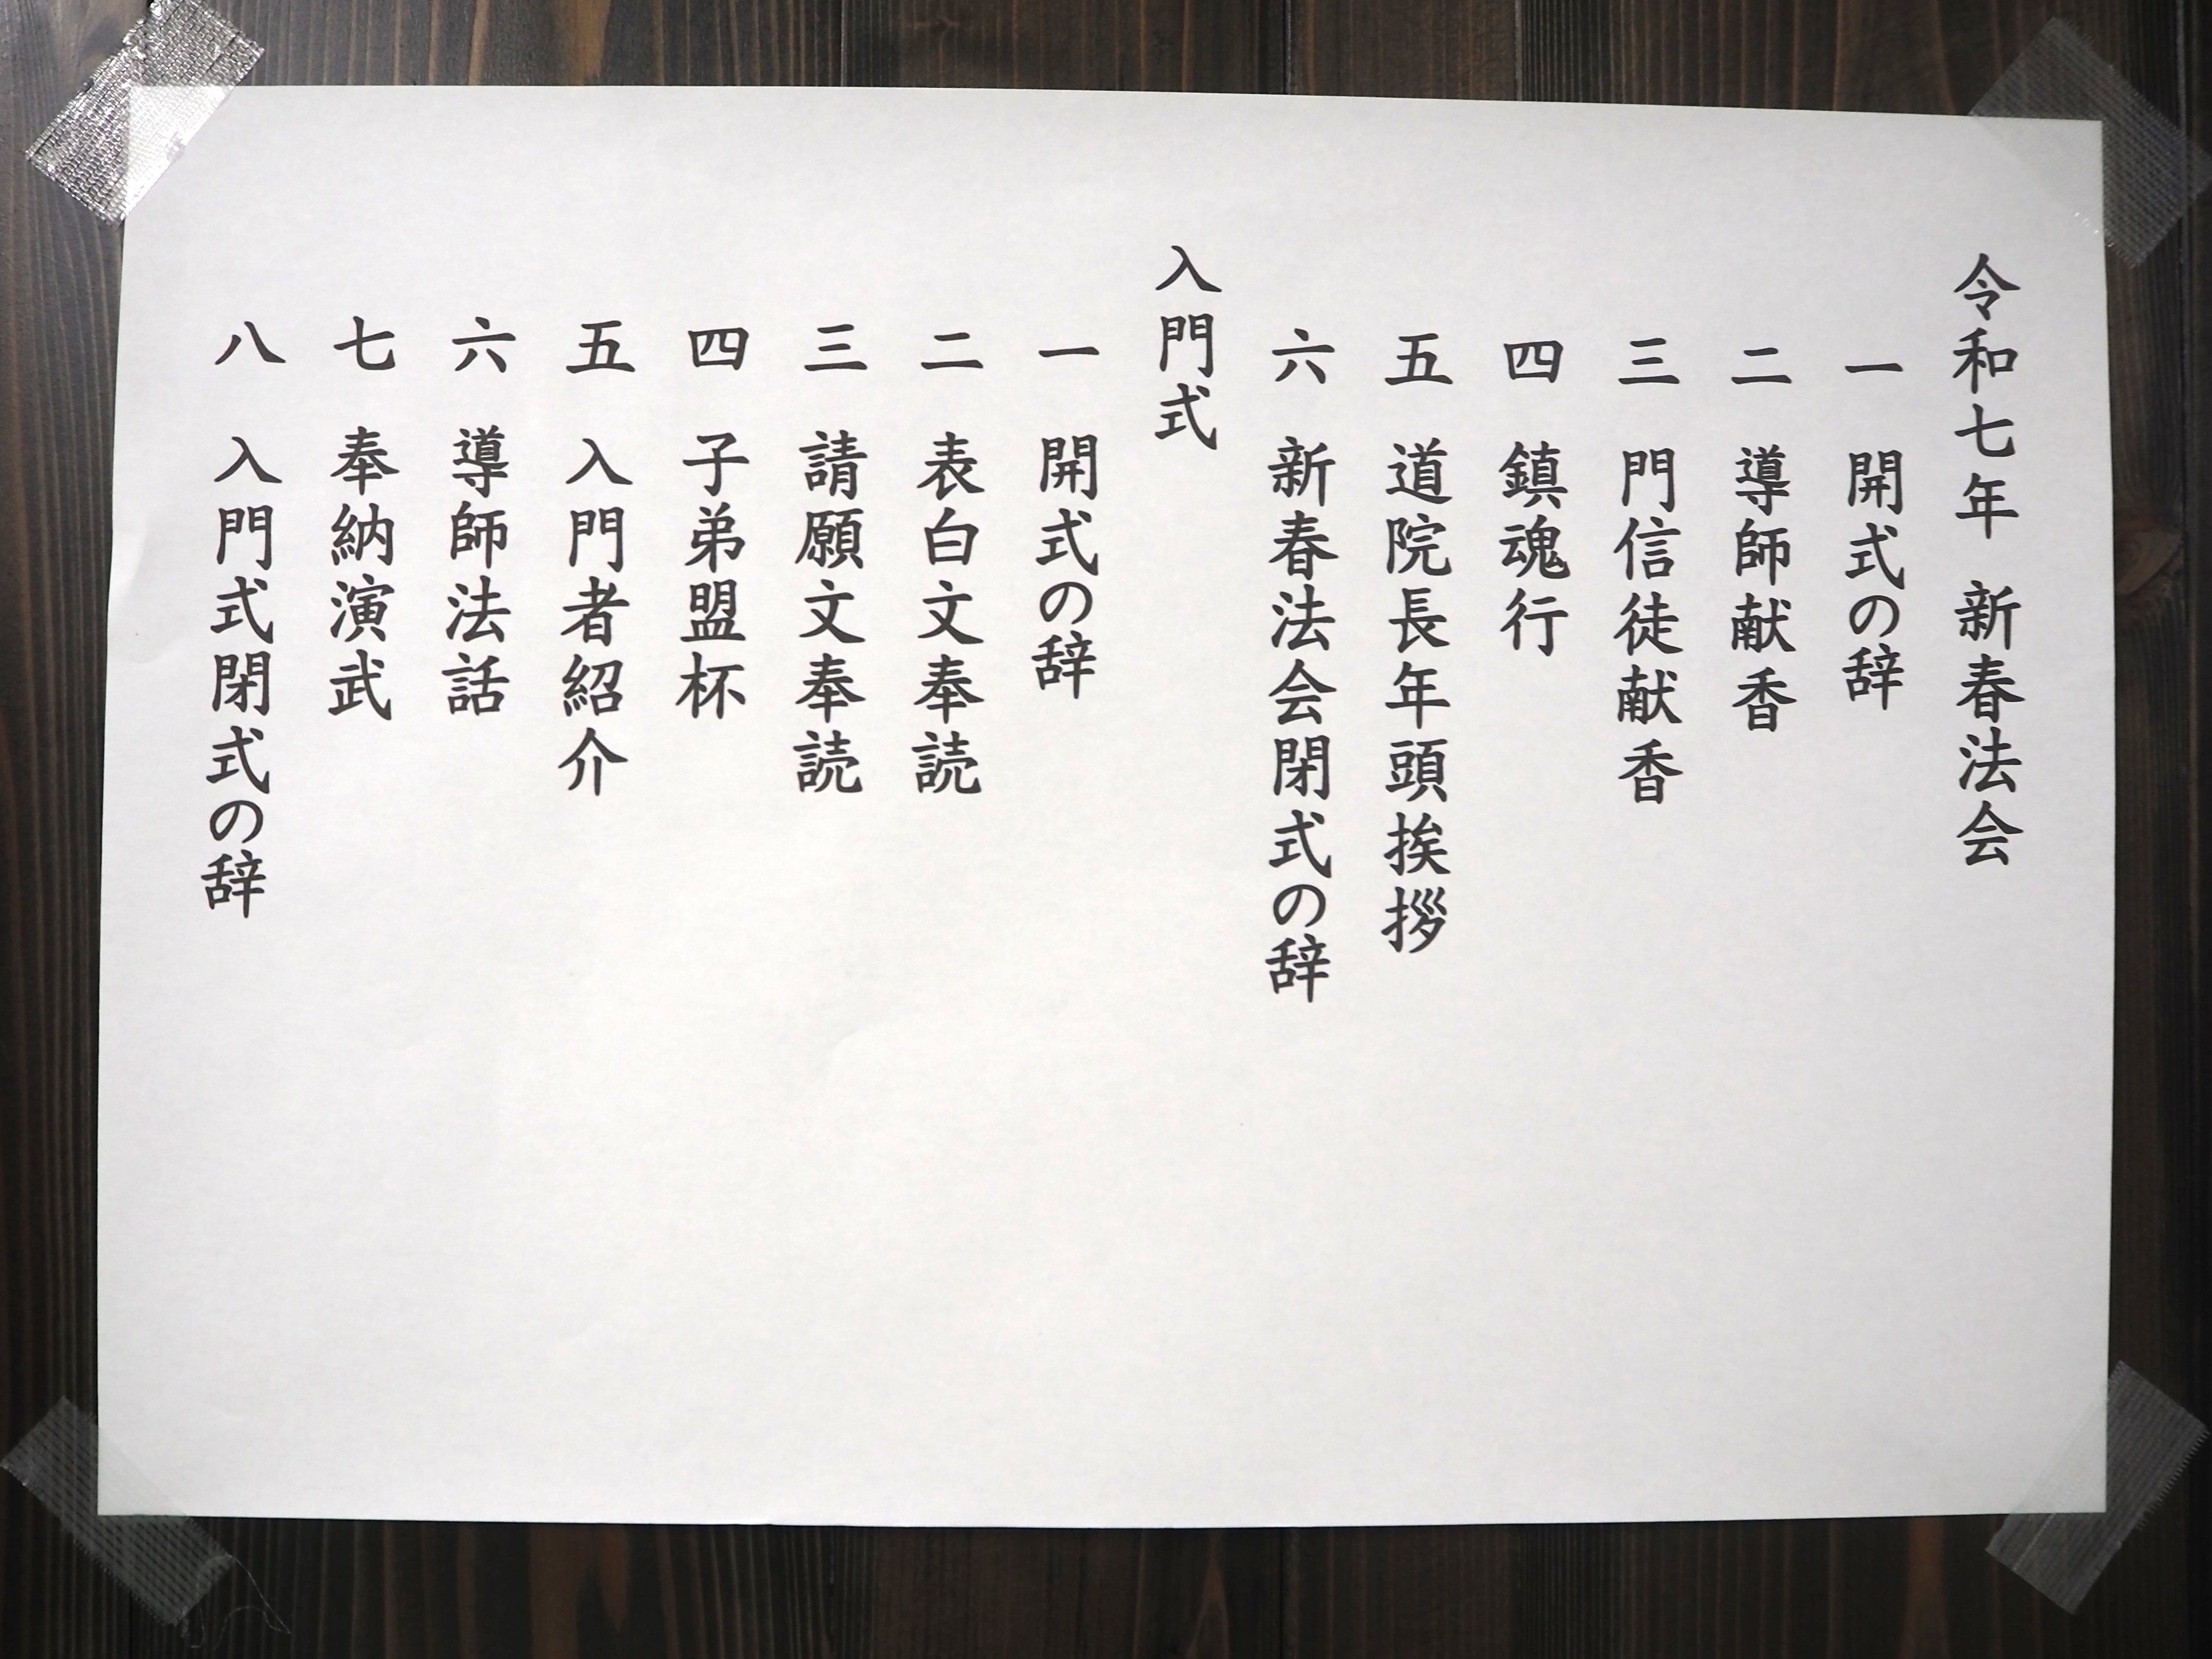 令和七年 新春法会
一 開式の辞
二 導師献香
三 門信徒献香
四 鎮魂行
五 道院長年頭挨拶
六 新春法会閉式の辞
入門式
一 開式の辞
二 表白文奉読
三 請願文奉読
四 子弟盟杯
五 入門者紹介
六 導師法話
七 奉納演武
八 入門式閉式の辞